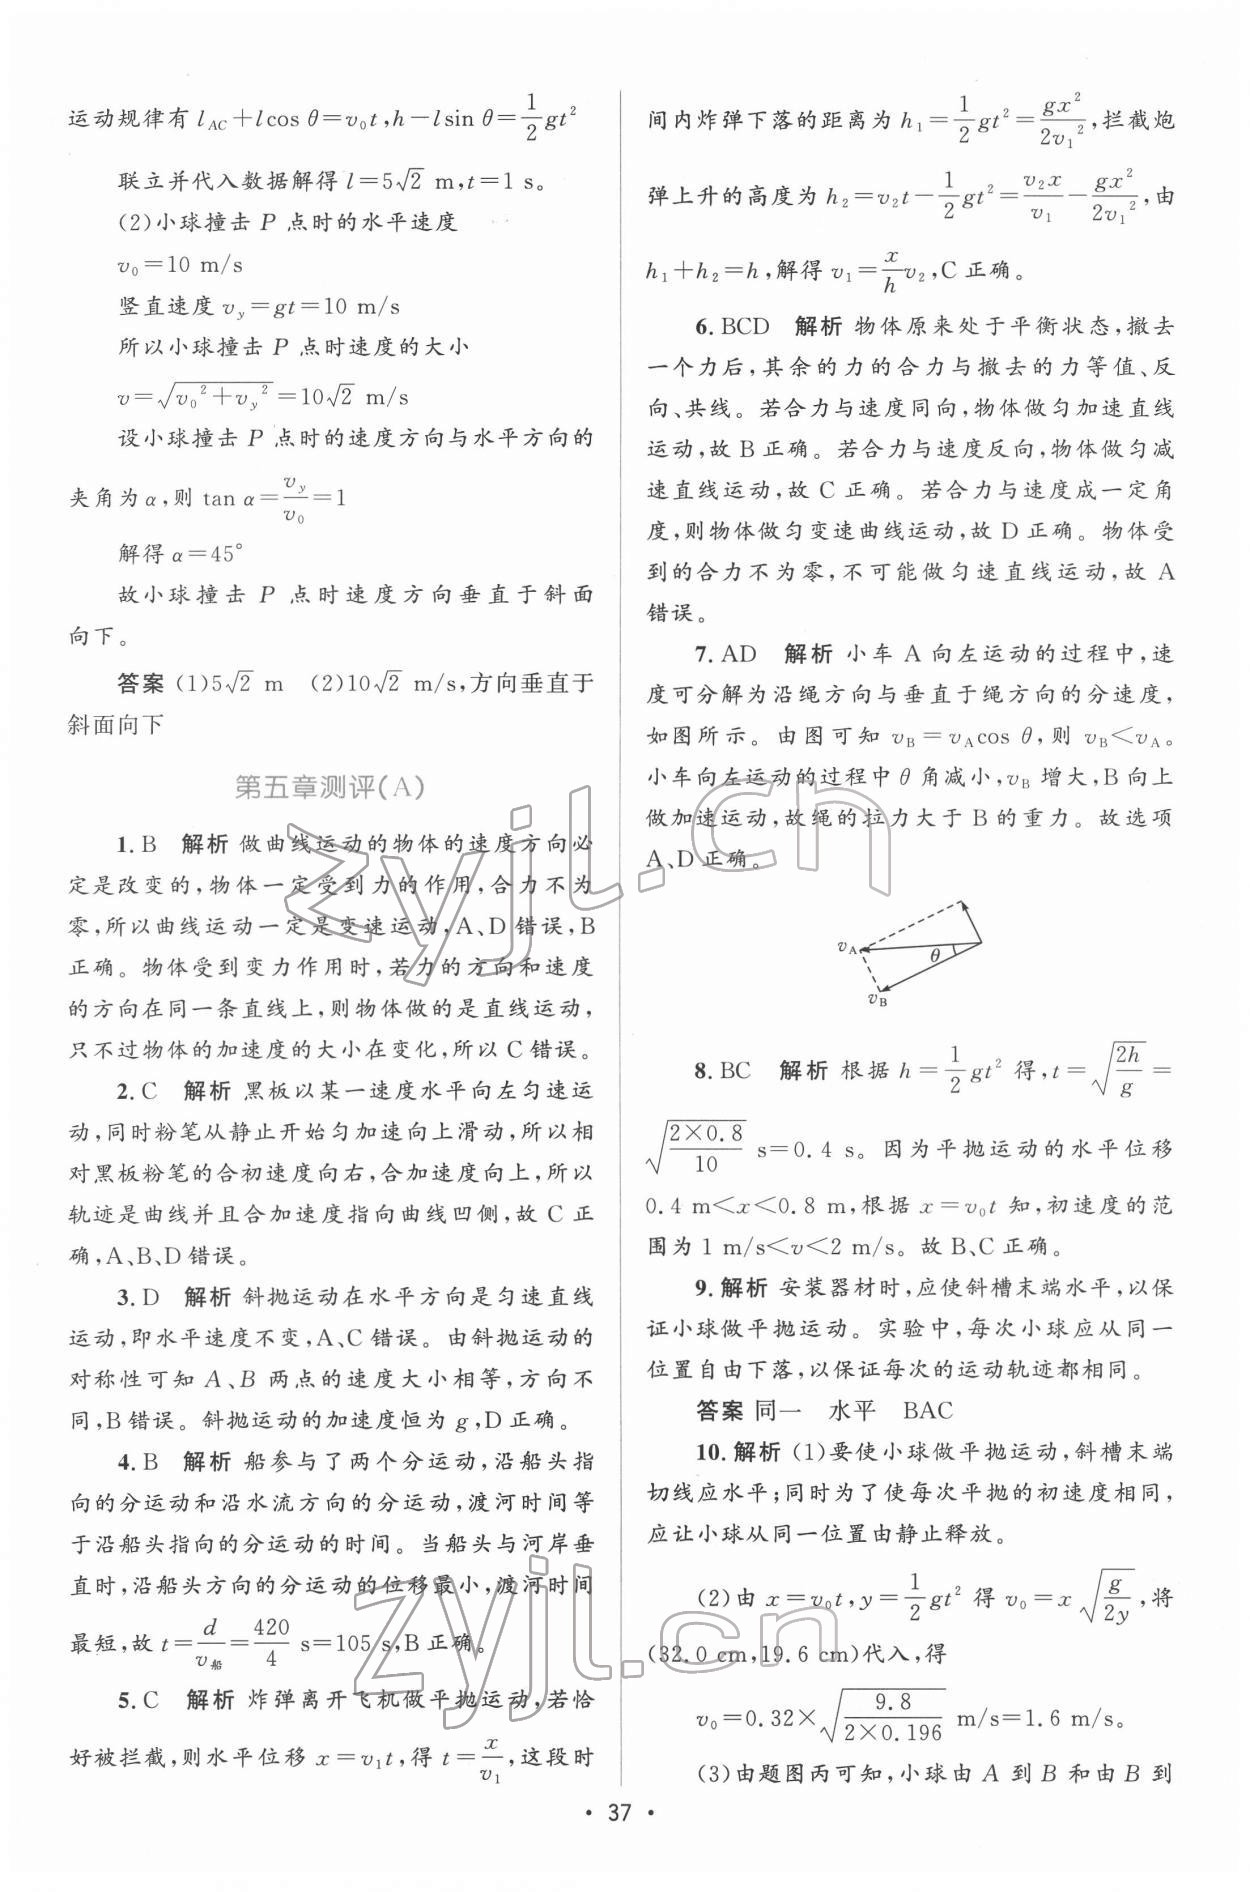 运动规律有 l_AC+lcos θ=v₀t,h-lsin θ=1/2gt²
联立并代入数据解得 l=5√2 m,t=1 s。
(2)小球撞击 P 点时的水平速度
v₀=10 m/s
竖直速度 v_y=gt=10 m/s
所以小球撞击 P 点时速度的大小
v=√(v₀²+v_y²)=10√2 m/s
设小球撞击 P 点时的速度方向与水平方向的
夹角为 α,则 tan α=v_y/v₀=1
解得 α=45°
故小球撞击 P 点时速度方向垂直于斜面
向下。
答案 (1)5√2 m (2)10√2 m/s,方向垂直于
斜面向下
第五章测评(A)
1. B 解析 做曲线运动的物体的速度方向必
定是改变的,物体一定受到力的作用,合力不为
零,所以曲线运动一定是变速运动,A、D 错误,B
正确。物体受到变力作用时,若力的方向和速度
的方向在同一条直线上,则物体做的是直线运动,
只不过物体的加速度的大小在变化,所以 C 错误。
2. C 解析 黑板以某一速度水平向左匀速运
动,同时粉笔从静止开始匀加速向上滑动,所以相
对黑板粉笔的合初速度向右,合加速度向上,所以
轨迹是曲线并且合加速度指向曲线凹侧,故 C 正
确,A、B、D 错误。
3. D 解析 斜抛运动在水平方向是匀速直线
运动,即水平速度不变,A、C 错误。由斜抛运动的
对称性可知 A、B 两点的速度大小相等,方向不
同,B 错误。斜抛运动的加速度恒为 g,D 正确。
4. B 解析 船参与了两个分运动,沿船头指
向的分运动和沿水流方向的分运动,渡河时间等
于沿船头指向的分运动的时间。当船头与河岸垂
直时,沿船头方向的分运动的位移最小,渡河时间
最短,故 t=d/v船=420/4 s=105 s,B 正确。
5. C 解析 炸弹离开飞机做平抛运动,若恰
好被拦截,则水平位移 x=v₁t,得 t=x/v₁,这段时
间内炸弹下落的距离为 h₁=1/2gt²=gx²/2v₁²,拦截炮
弹上升的高度为 h₂=v₂t-1/2gt²=v₂x/v₁-gx²/2v₁²,由
h₁+h₂=h,解得 v₁=x/h v₂,C 正确。
6. BCD 解析 物体原来处于平衡状态,撤去
一个力后,其余的力的合力与撤去的力等值、反
向、共线。若合力与速度同向,物体做匀加速直线
运动,故 B 正确。若合力与速度反向,物体做匀减
速直线运动,故 C 正确。若合力与速度成一定角
度,则物体做匀变速曲线运动,故 D 正确。物体受
到的合力不为零,不可能做匀速直线运动,故 A
错误。
7. AD 解析 小车 A 向左运动的过程中,速
度可分解为沿绳方向与垂直于绳方向的分速度,
如图所示。由图可知 v_B=v_Acos θ,则 v_B<v_A。
小车向左运动的过程中 θ 角减小,v_B 增大,B 向上
做加速运动,故绳的拉力大于 B 的重力。故选项
A、D 正确。
v_A
θ
v_B
8. BC 解析 根据 h=1/2gt² 得,t=√(2h/g)=
√(2×0.8/10) s=0.4 s。因为平抛运动的水平位移
0.4 m<x<0.8 m,根据 x=v₀t 知,初速度的范
围为 1 m/s<v<2 m/s。故 B、C 正确。
9. 解析 安装器材时,应使斜槽末端水平,以保
证小球做平抛运动。实验中,每次小球应从同一
位置自由下落,以保证每次的运动轨迹都相同。
答案 同一 水平 BAC
10. 解析 (1)要使小球做平抛运动,斜槽末端
切线应水平;同时为了使每次平抛的初速度相同,
应让小球从同一位置由静止释放。
(2)由 x=v₀t,y=1/2gt² 得 v₀=x√(g/2y),将
(32.0 cm,19.6 cm)代入,得
v₀=0.32×√(9.8/(2×0.196)) m/s=1.6 m/s。
(3)由题图丙可知,小球由 A 到 B 和由 B 到
· 37 ·
zyjl.cn
zyjl.cn